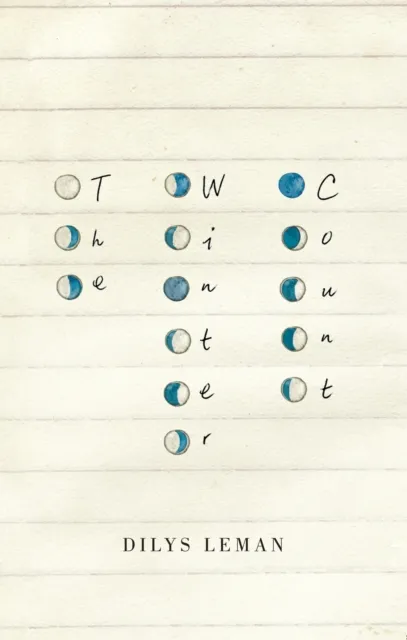 The
Winter
Count
DILYS LEMAN